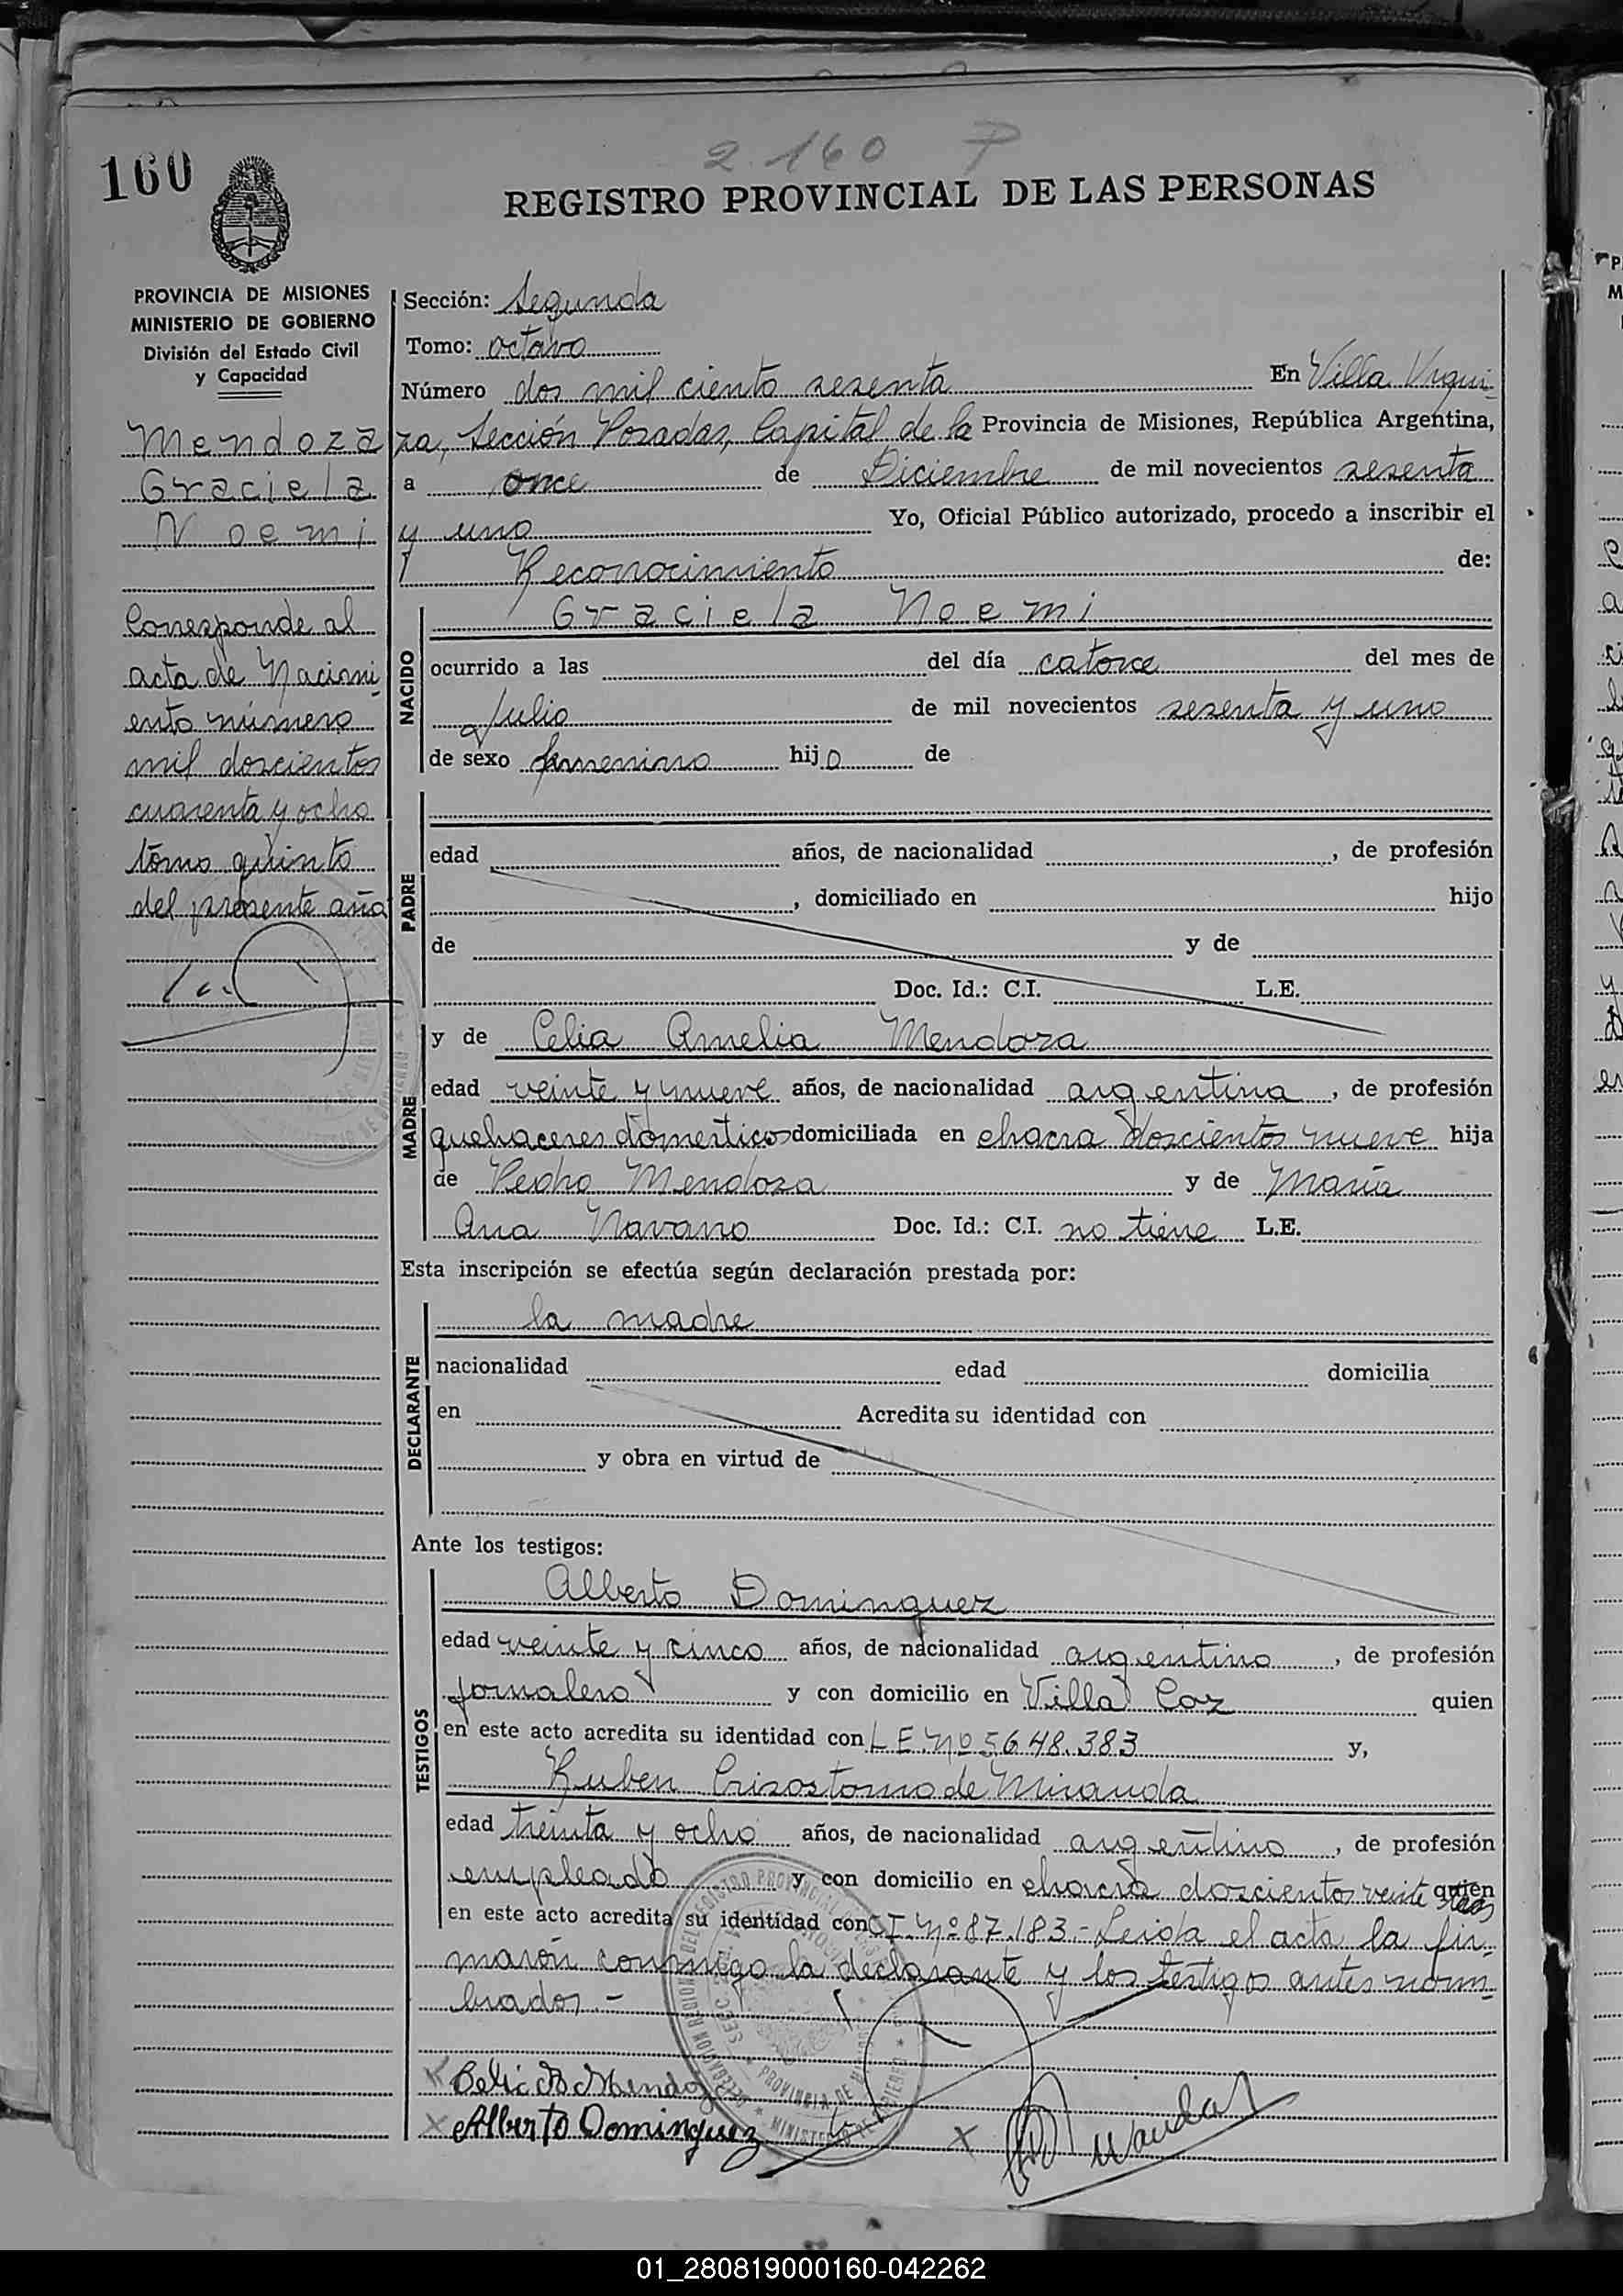 2.160 P
160
REGISTRO PROVINCIAL DE LAS PERSONAS
PROVINCIA DE MISIONES
MINISTERIO DE GOBIERNO
División del Estado Civil
y Capacidad
Mendoza
Graciela
Noemi
Corresponde al
acta de Nacimi-
ento número
mil doscientos
cuarenta y ocho
tomo quinto
del presente año
Sección: Segunda
Tomo: octavo
Número dos mil ciento sesenta En Villa Urqui-
za, Sección Posadas, Capital de la Provincia de Misiones, República Argentina,
a once de Diciembre de mil novecientos sesenta
y uno Yo, Oficial Público autorizado, procedo a inscribir el
Reconocimiento de:
NACIDO
Graciela Noemi
ocurrido a las del día catorce del mes de
Julio de mil novecientos sesenta y uno
de sexo femenino hijo de
PADRE
edad años, de nacionalidad , de profesión
, domiciliado en hijo
de y de
Doc. Id.: C.I. L.E.
MADRE
y de Celia Amelia Mendoza
edad veinte y nueve años, de nacionalidad argentina, de profesión
quehaceres domesticos domiciliada en chacra doscientos nueve hija
de Pedro Mendoza y de María
Ana Navarro Doc. Id.: C.I. no tiene L.E.
Esta inscripción se efectúa según declaración prestada por:
DECLARANTE
la madre
nacionalidad edad domicilia
en Acredita su identidad con
y obra en virtud de
Ante los testigos:
TESTIGOS
Alberto Dominguez
edad veinte y cinco años, de nacionalidad argentino, de profesión
jornalero y con domicilio en Villa Coz quien
en este acto acredita su identidad con L E Nº 5.648.383 y,
Ruben Crisostomo de Miranda
edad treinta y ocho años, de nacionalidad argentino, de profesión
empleado y con domicilio en chacra doscientos veinte tres quien
en este acto acredita su identidad con C I. Nº 87.183.- Leida el acta, la fir-
maron conmigo la declarante y los testigos antes nom-
brados.-
x Celia A Mendoza
x Alberto Dominguez
x Miranda
01_280819000160-042262